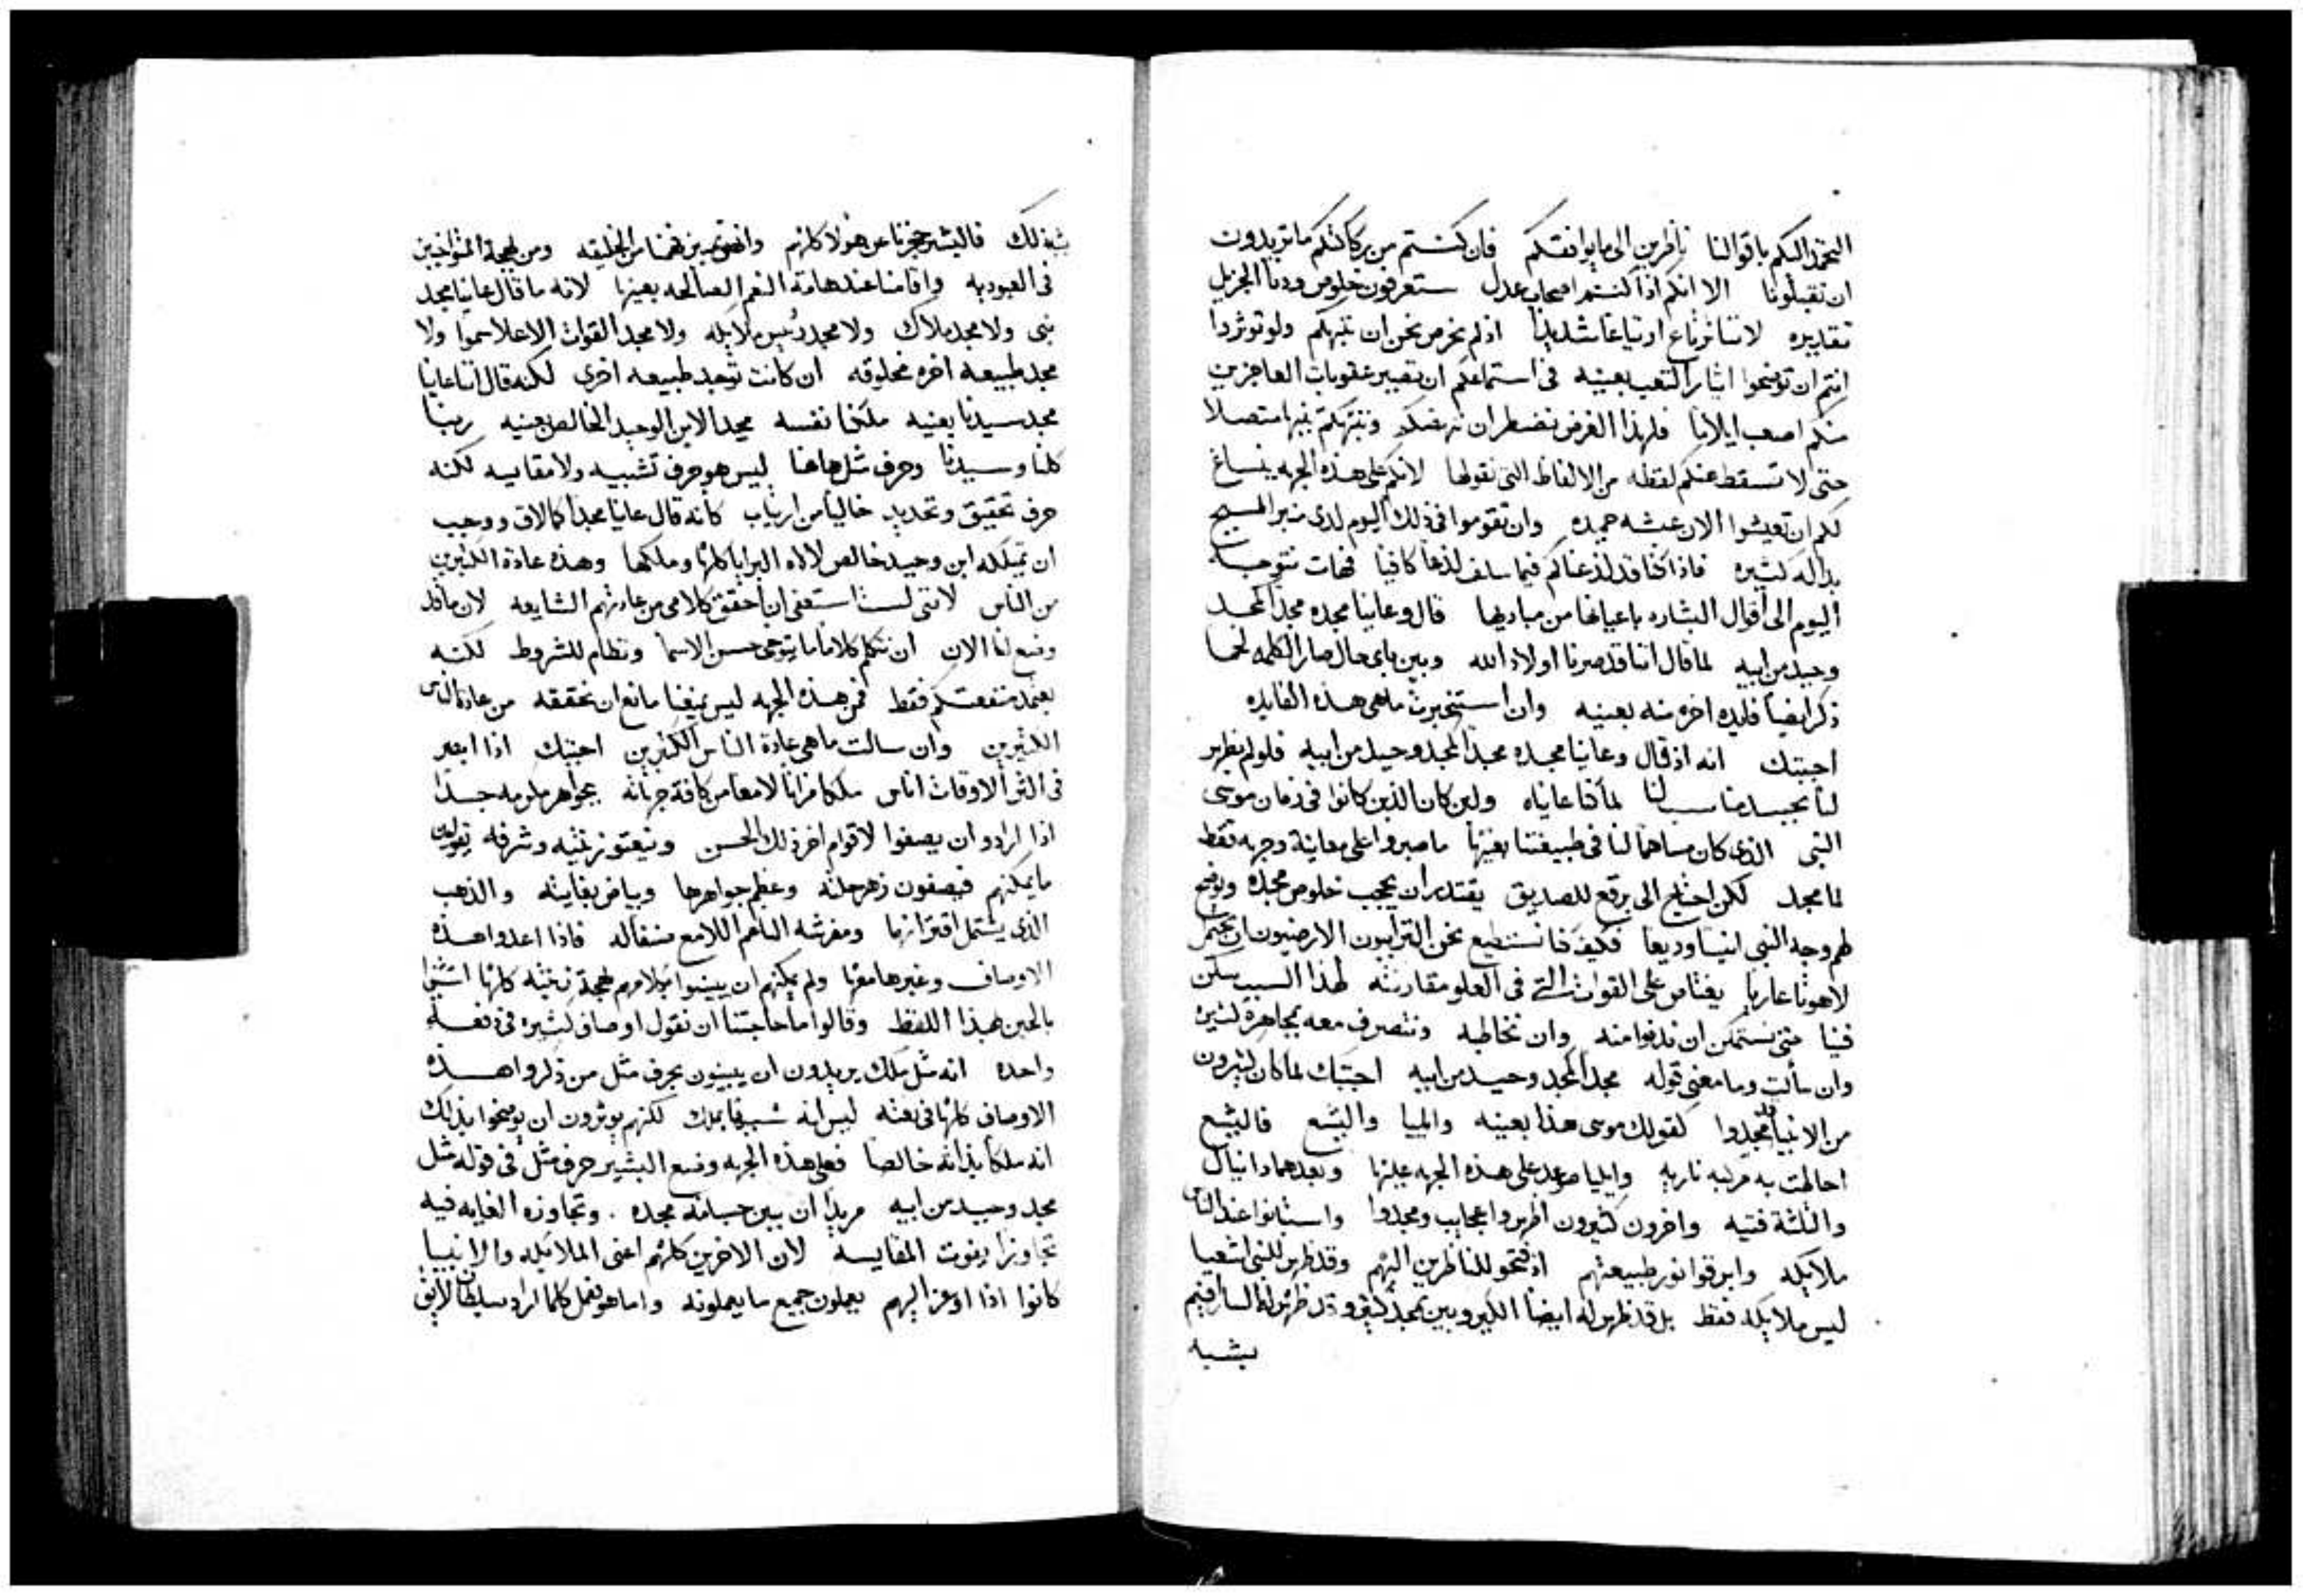 اليكم باقوالنا ناظرين الى ما يوافقكم فان كنتم من بركاتكم ما تريدون
ان تقبلونا الا انكم اذا كنتم اصحاب عدل ستعرفون خلوص ودنا الجزيل
تقديره لاننا نرتاع ارتياعا شديدا اذ لم نحرص نحن ان ننبهكم ولو توثروا
انتم ان توضحوا ايثار التعب بعينه فى استماعكم ان تصير عقوبات العاجزين
منكم اصعب ايلاما فلهذا الغرض نضطر ان ننهضكم وننبهكم تنبيها متصلا
حتى لا تسقط عنكم لفظه من الالفاظ التى نقولها لانكم على هذه الجهه ينساغ
لكم ان تعيشوا الان عيشه حميده وان تقوموا فى ذلك اليوم لدى منبر المسيح
بداله كثيره فاذ كنا قد لذعناكم فيما سلف لذعا كافيا فهات نتوجه
اليوم الى اقوال البشاره باعيانها من مباديها قال وعاينا مجده مجدا كمجد
وحيد من ابيه لما قال اننا قد صرنا اولاد الله وبين باى حال صار الكلمه لحما
ذكر ايضا فايده اخره منه بعينه وان استخبرت ما هى هذه الفايده
اجبتك انه اذ قال وعاينا مجده مجدا كمجد وحيد من ابيه فلو لم يظهر
لنا بجسد مناسب لنا لما كنا عايناه ولين كان الذين كانوا فى زمان موسى
النبى الذى كان مساهما لنا فى طبيعتنا بعينها ما صبروا على معاينة وجهه فقط
لما مجد لكن احتاج الى برقع للصديق يقتدر ان يحجب خلوص مجده ويوضح
لهم وجه النبى انيسا وديعا فكيف كنا نستطيع نحن الترابيون الارضيون ان نحتمل
لاهوتا عاريا يعتاص على القوات التى فى العلو مقاربته لهذا السبب سكن
فينا حتى نستمكن ان ندنوا منه وان نخاطبه ونتصرف معه بمجاهرة كثيره
وان سألت وما معنى قوله مجدا كمجد وحيد من ابيه اجبتك لما كان كثيرون
من الانبيا قد مجدوا كقولك موسى هذا بعينه وايليا واليشع فاليشع
احاطت به مركبه ناريه وايليا صعد على هذه الجهه عينها وبعدهما دانيال
والثلثة فتيه واخرون كثيرون اظهروا عجايب ومجدوا واستبانوا عند الناس
ملايكه وابرقوا نور طبيعتهم اذ فتحو للناظرين اليهم وقد ظهر للنبى اشعيا
ليس ملايكه فقط بل قد ظهر له ايضا الكيروبين بمجد كثير وقد ظهر له السارافيم
بشبه
بشبه ذلك فالبشير حجزنا عن هولا كلهم وانهض تمييز فهمنا من الخليقه ومن لهجة المتواخيين
فى العبوديه واقامنا عند هامة النعم الصالحه بعينها لانه ما قال عاينا مجد
نبى ولا مجد ملاك ولا مجد رئيس ملايكه ولا مجد القوات الاعلا سموا ولا
مجد طبيعه اخره مخلوقه ان كانت توجد طبيعه اخرى لكنه قال اننا عاينا
مجد سيدنا بعينه ملكنا نفسه مجد الابن الوحيد الخالص بعينه ربنا
كلنا وسيدنا وحرف مثل هاهنا ليس هو حرف تشبيه ولا مقايسه لكنه
حرف تحقيق وتحديد خاليا من ارتياب كانه قال عاينا مجدا كالاق ووجب
ان يمتلكه ابن وحيد خالص لالاه البرايا كلها وملكها وهذه عادة الكثيرين
من الناس لاننى لست استعفى ان احقق كلامى من عادتهم الشايعه لان ما قد
وضع لنا الان ان نتكلم كلاما ما يتوخى حسن الاسما ونظام للشروط لكنه
يعتمد منفعتكم فقط فمن هذه الجهه ليس يمنعنا مانع ان نحققه من عادة الناس
الكثيرين وان سالت ما هى عادة الناس الكثيرين اجبتك اذا ابصر
فى اكثر الاوقات اناس ملكا مزانا لامعا من كافة جهاته بجواهر مكرمه جدا
اذا ارادو ان يصفوا لاقوام اخر ذلك الحسن ونعته وزينته وشرفه يقولون
ما يمكنهم فيصفون زهر حلته وعظم جواهرها وبياض بغايته والذهب
الذى يشتمل اقترانها ومفرشه الناعم اللامع صقاله فاذا اعدوا هذه
الاوصاف وغيرها معها ولم يمكنهم ان يبينوا بكلامهم لهجة زينته كلها استثنوا
بالحين بهذا اللفظ وقالوا ما حاجتنا ان نقول اوصاف كثيره فى دفعه
واحده انه مثل ملك يريدون ان يبينون بحرف مثل من ذكروا هذه
الاوصاف كلها فى نعته ليس انه شبيها بملك لكنهم يوثرون ان يوضحوا بذلك
انه ملكا بذاته خالصا فعلى هذه الجهه وضع البشير حرف مثل فى قوله مثل
مجد وحيد من ابيه مريدا ان يبين جسامة مجده . وتجاوزه الغايه فيه
تجاوزا يفوت المقايسه لان الاخرين كلهم اعنى الملايكه والانبيا
كانوا اذا اوعز اليهم يعملون جميع ما يعملونه واما هو ففعل كلما اراد بسلطان لايق